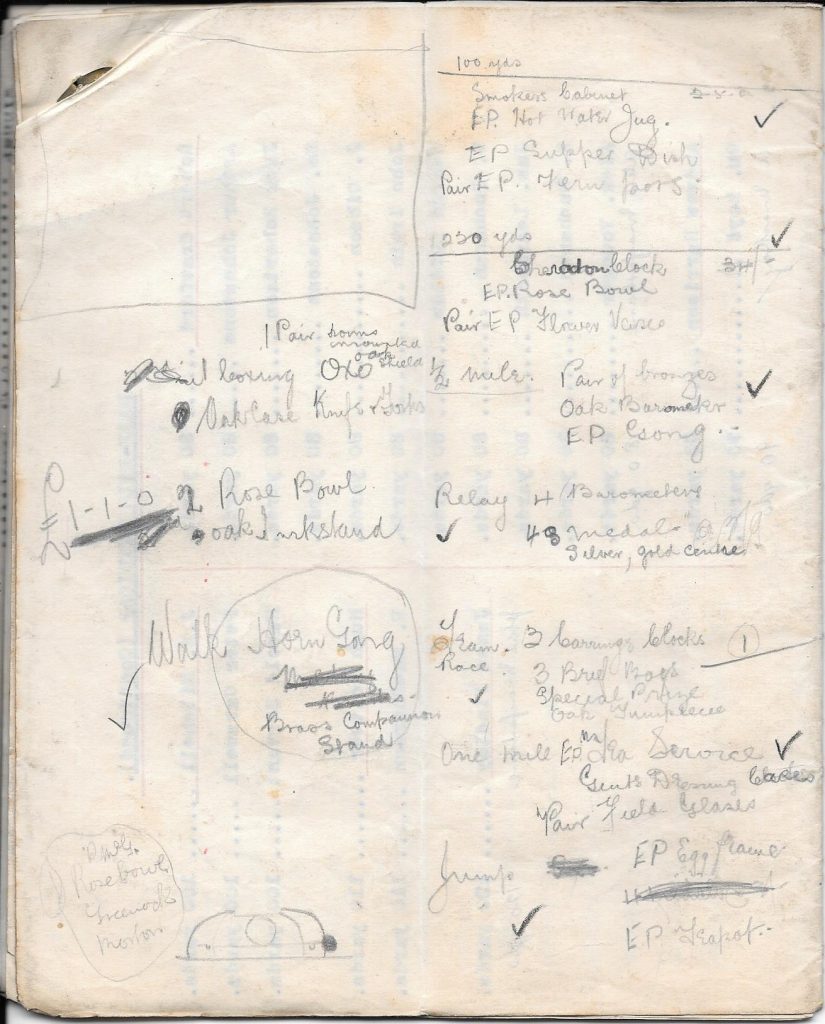 1 Pair horns
mounted
oak shield
boxing OXO
Oak Case Knifs & Forks
1-1-0 2 Rose Bowl
oak Inkstand
Walk Horn Gong
Brass Companion
Stand
Rosebowl
Greenock
Morton
100 yds
Smokers Cabinet
EP. Hot Water Jug.
EP Supper Dish
Pair EP. Fern pots
220 yds
Clock 34/
EP. Rose Bowl
Pair EP Flower Vases
1/2 mile. Pair of bronzes
Oak Barometer
EP Gong
Relay 4 Barometers
48 medals
Silver, gold centre
Team 3 Carriage Clocks 1
Race. 3 Brief Bags
Special Prize
Oak Timepiece
One mile EP Tea Service
Gents Dressing Cases
Pair Field Glases
Jump EP Egg frame
EP Teapot